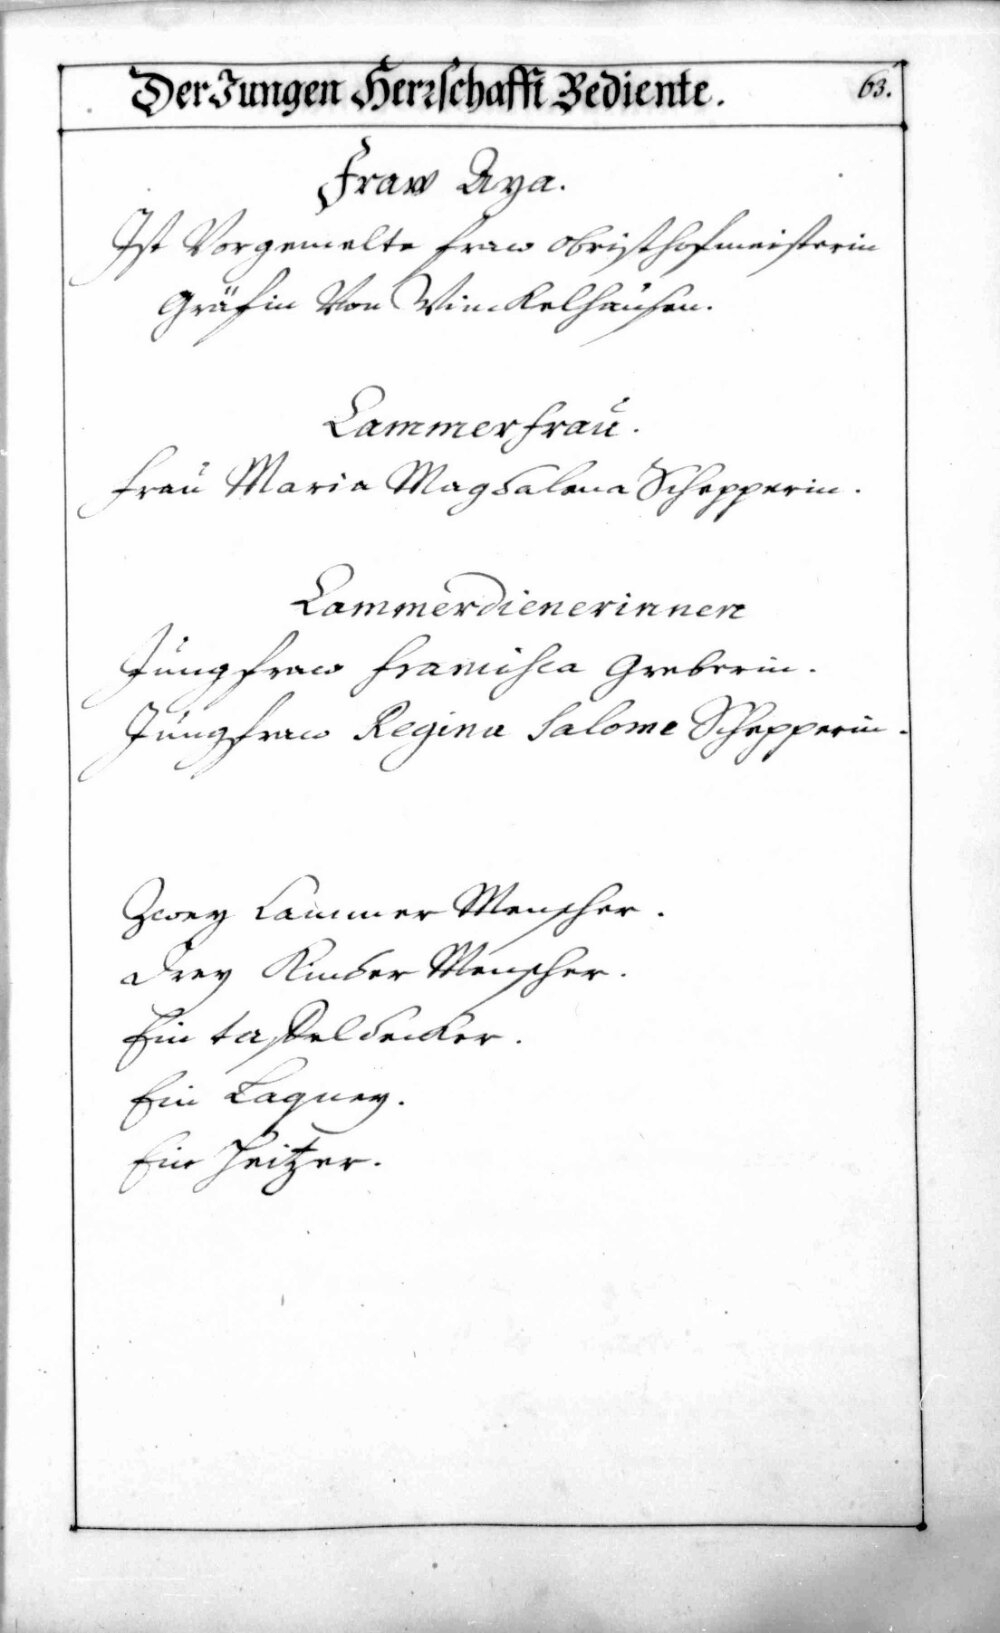 Der Jungen Herrschafft Bediente.
63.
Fraw Aya.
Ist Vorgemelte Fraw Obristhofmeisterin
Gräfin Von Vinckelhaüsen.
Cammerfraŭ.
Fraŭ Maria Magdalena Schepperin.
Cammerdienerinnen
Jŭngfraw Francisca Greberin.
Jŭngfraw Regina Salome Schepperin.
Zwey Cammer Menscher.
Drey Kinder Menscher.
Ein taffeldecker.
Ein Laquey.
Ein Heitzer.